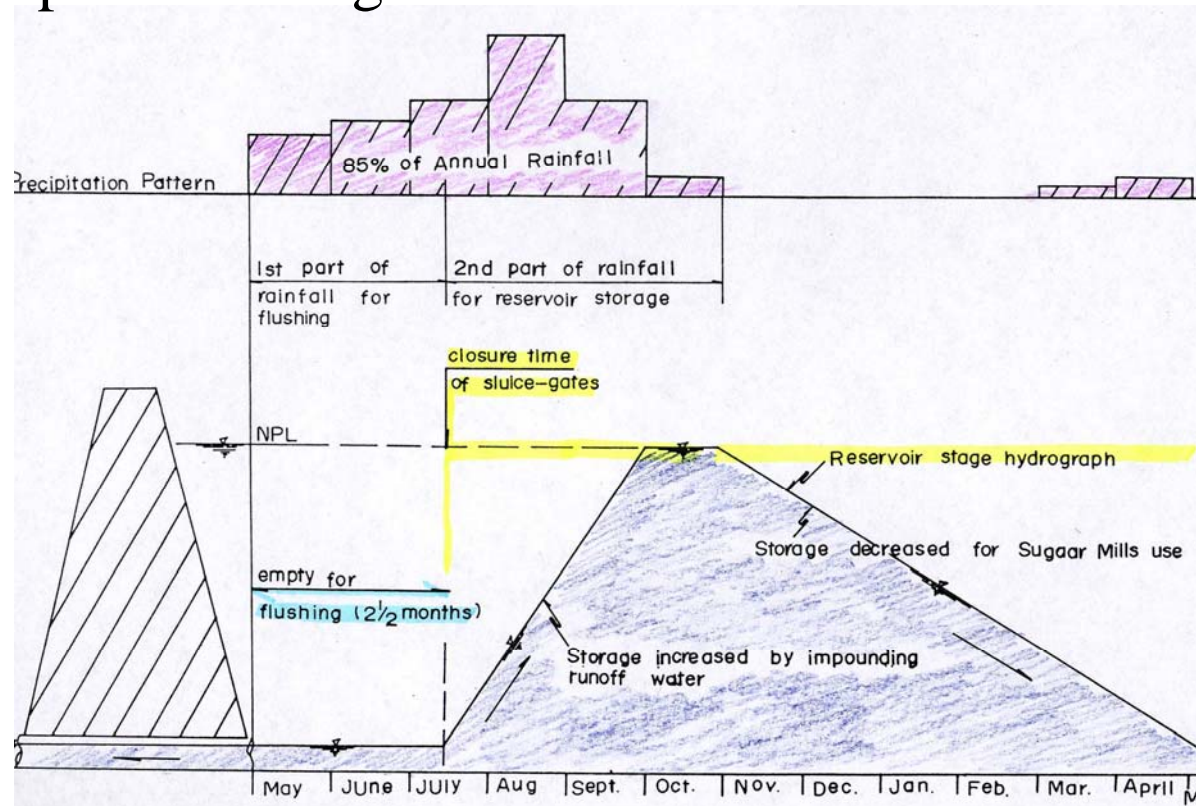 85% of Annual Rainfall
Precipitation Pattern
1st part of
rainfall for
flushing
2nd part of rainfall
for reservoir storage
closure time
of sluice-gates
NPL
Reservoir stage hydrograph
Storage decreased for Sugaar Mills use
empty for
flushing (2½ months)
Storage increased by impounding
runoff water
May JUne JUly Aug Sept. Oct. Nov. Dec. Jan. Feb. Mar. April M